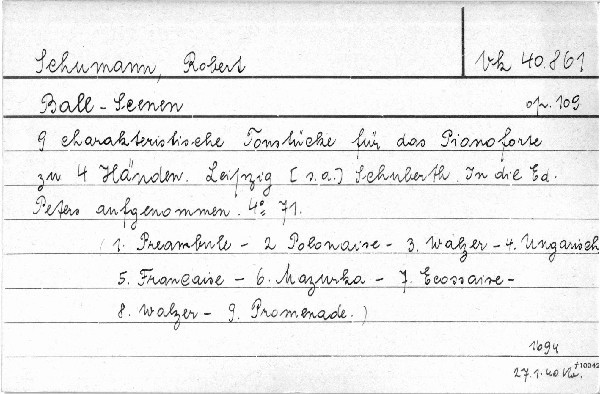 Schumann, Robert
Vk 40.861
Ball-Scenen
op. 109
9 charakteristische Tonstücke für das Pianoforte
zu 4 Händen. Leipzig [s.a.] Schuberth. In die Ed.
Peters aufgenommen. 4° 71.
(1. Preambule - 2 Polonaise - 3. Walzer - 4. Ungarisch
5. Française - 6. Mazurka - 7. Ecossaise -
8. Walzer - 9. Promenade.)
27.1.40